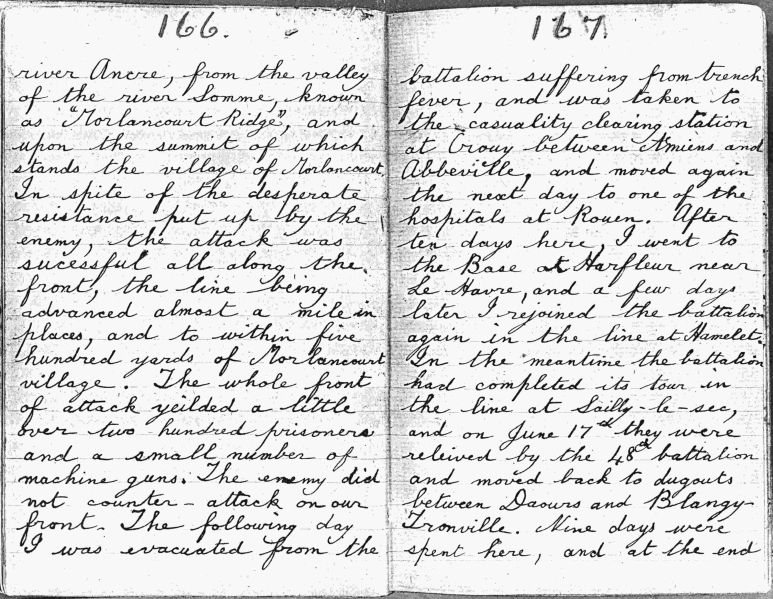 166.
river Ancre, from the valley
of the river Somme, known
as "Morlancourt Ridge", and
upon the summit of which
stands the village of Morlancourt.
In spite of the desperate
resistance put up by the
enemy, the attack was
sucessful all along the
front, the line being
advanced almost a mile in
places, and to within five
hundred yards of Morlancourt
village. The whole front
of attack yeilded a little
over two hundred prisoners
and a small number of
machine guns. The enemy did
not counter-attack on our
front. The following day
I was evacuated from the
167
battalion suffering from trench
fever, and was taken to
the casuality clearing station
at Crouy between Amiens and
Abbeville, and moved again
the next day to one of the
hospitals at Rouen. After
ten days here, I went to
the Base at Harfleur near
Le Havre, and a few days
later I rejoined the battalion
again in the line at Hamelet.
In the meantime the battalion
had completed its tour in
the line at Sailly-le-sec,
and on June 17th they were
releived by the 48th battalion
and moved back to dugouts
between Daours and Blangy-
Tronville. Nine days were
spent here, and at the end